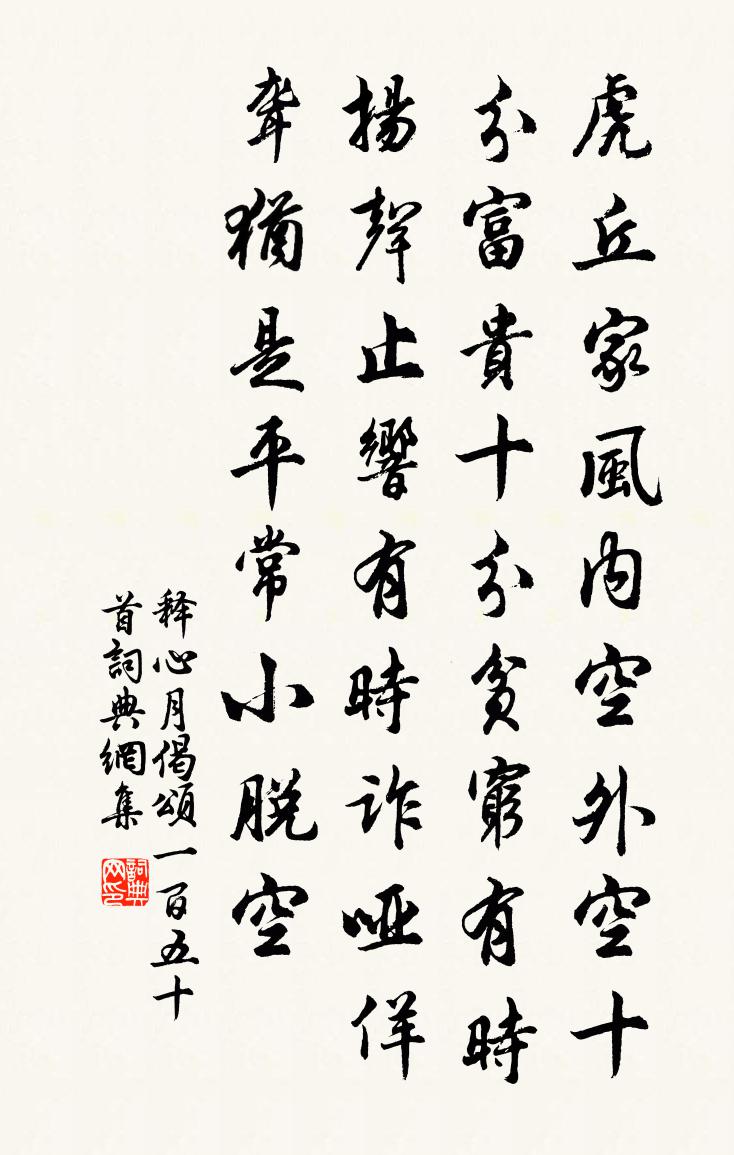 虎丘家風内空外空十
分富貴十分貧窮有時
揚聲止響有時詐啞佯
聾猶是平常小脱空
释心月偈頌一百五十
首詞典網集
詞典网印